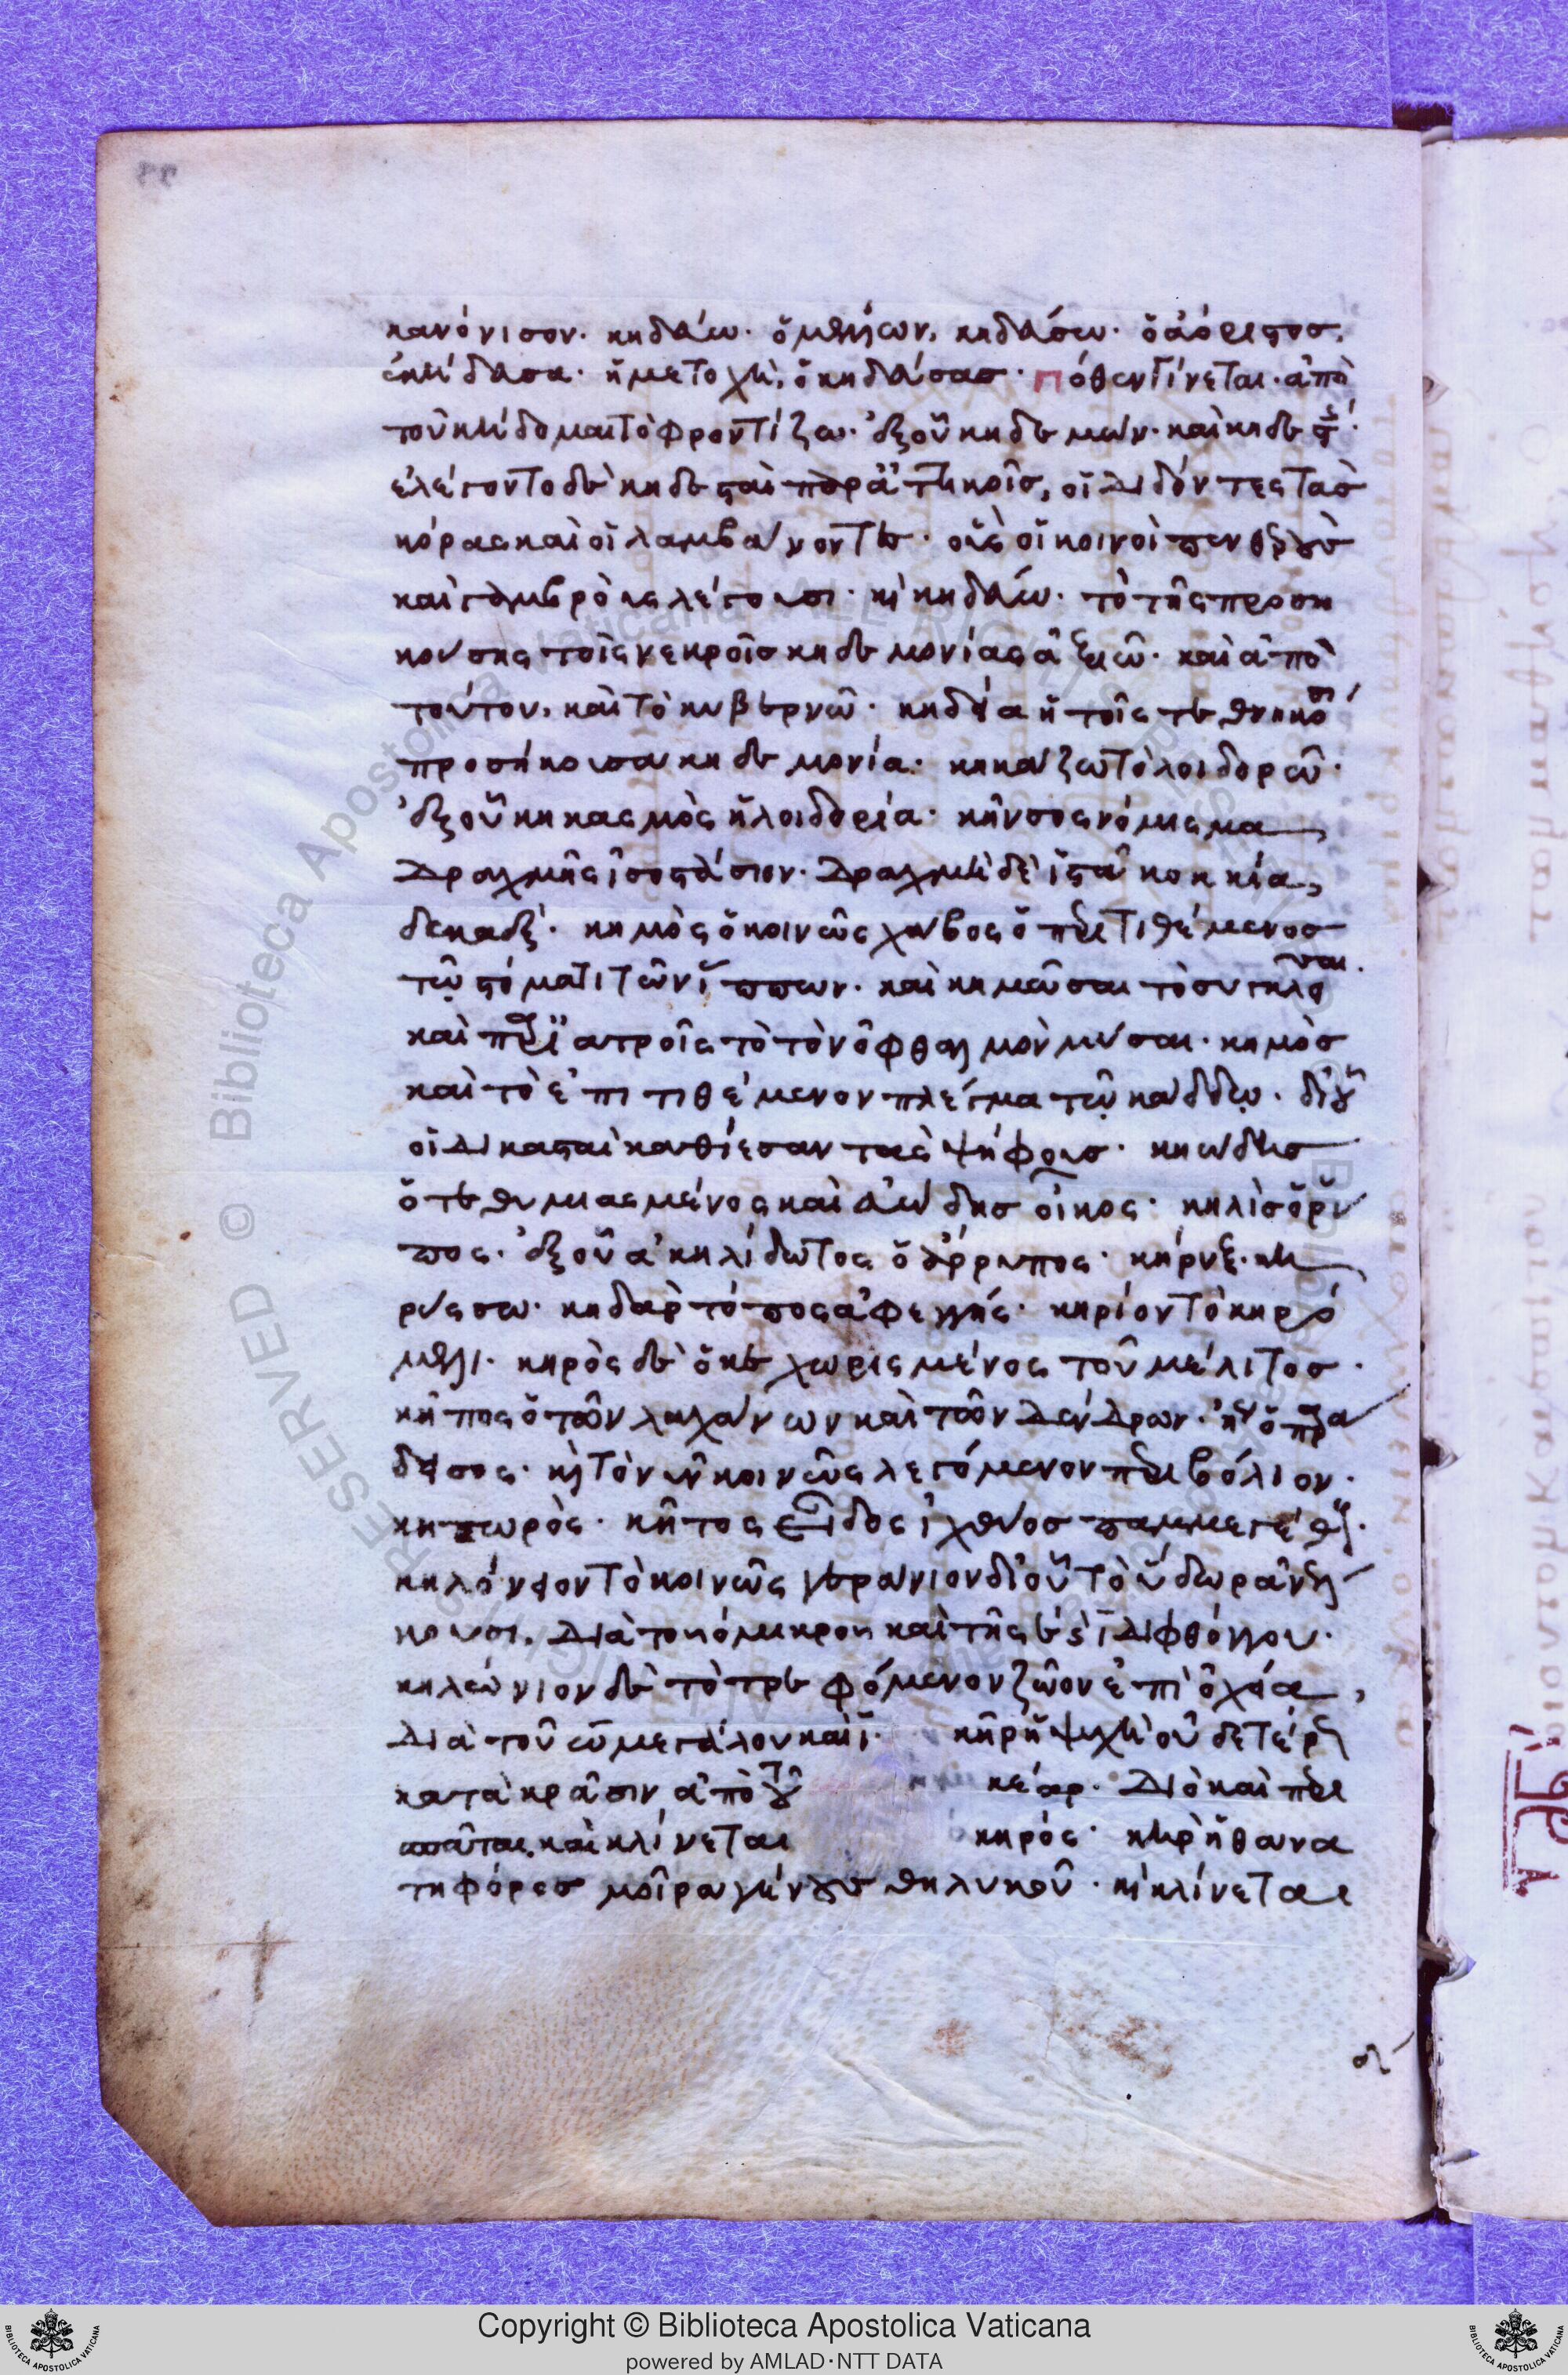 κανόνισον. κηδεύω. ὁ μέλλων, κηδεύσω. ὁ ἀόριστος,
ἐκήδευσα. ἡ μετοχὴ, ὁ κηδεύσας. Πόθεν γίνεται. ἀπὸ
τοῦ κήδομαι τὸ φροντίζω. ἐξ οὗ κηδεμών. καὶ κηδεστής.
ἐλέγοντο δὲ κηδεσταὶ παρὰ ἀττικοῖς, οἱ διδόντες τὰς
κόρας καὶ οἱ λαμβάνοντες. οὓς οἱ κοινοὶ πενθεροὺς
καὶ γαμβροὺς λέγουσι. καὶ κηδεύω. τὸ τῆς προση
κούσης τοῖς νεκροῖς κηδεμονίας ἀξιῶ. καὶ ἀπὸ
τούτου, καὶ τὸ κυβερνῶ. κηδεία ἡ τοῖς τεθνηκόσι
προσήκουσα κηδεμονία. κηκάζω τὸ λοιδορῶ.
ἐξ οὗ κηκασμὸς ἡ λοιδορία. κῆνσος νόμισμα
δραχμῆς ἰσοστάσιον. δραχμὴ δὲ ἱστᾶ κοκκία,
δεκαέξ. κημὸς ὁ κοινῶς χάβος ὁ περιτιθέμενος
τῷ στόματι τῶν ἵππων. καὶ κημῶσαι τὸ συγκλεῖσαι.
καὶ παρὰ ἰατροῖς τὸ τὸν ὀφθαλμὸν μύσαι. κημὸς
καὶ τὸ ἐπιτιθέμενον πλέγμα τῷ κάδδῳ. δι' οὗ
οἱ δικασταὶ καθίεσαν τὰς ψήφους. κηώδης
ὁ τεθυμιασμένος καὶ εὐώδης οἶκος. κηλὶς ὁ ῥύ
πος. ἐξ οὗ ἀκηλίδωτος ὁ ἄρρυπος. κήρυξ. κη
ρύσσω. κηδαρ τόπος ἀφεγγής. κηρίον τὸ κηρό
μελι. κηρὸς δὲ ὁ κεχωρισμένος τοῦ μέλιτος.
κῆπος ὁ τῶν λαχάνων καὶ τῶν δένδρων. ἤγουν ὁ παρά
δεισος. καὶ τὸ νῦν κοινῶς λεγόμενον περιβόλιον.
κηπωρὸς. κῆτος εἶδος ἰχθύος παμμεγέθους.
κηλόνειον τὸ κοινῶς γεράνιον δι' οὗ τὸ ὕδωρ ἀνέλ
κουσι, διὰ τοῦ ο μικροῦ καὶ τῆς ει διφθόγγου.
κηλώνιον δὲ τὸ τρεφόμενον ζῶον ἐπὶ ὀχεία,
διὰ τοῦ ω μεγάλου καὶ ι. κῆρ ἡ ψυχὴ οὐδετέρως
κατὰ κρᾶσιν ἀπὸ τοῦ κέαρ. διὸ καὶ περι
σπᾶται. καὶ κλίνεται κηρός. κὴρ ἡ θανα
τηφόρος μοῖρα γένους θηλυκοῦ. καὶ κλίνεται